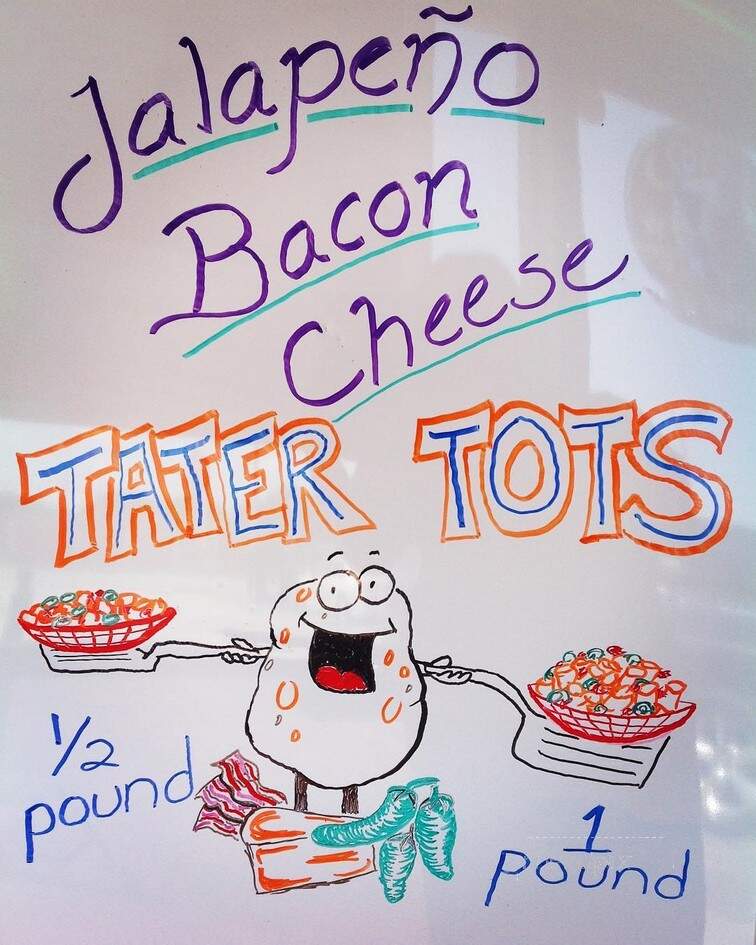 Jalapeño
Bacon
Cheese
TATER TOTS
1/2
pound
1
pound